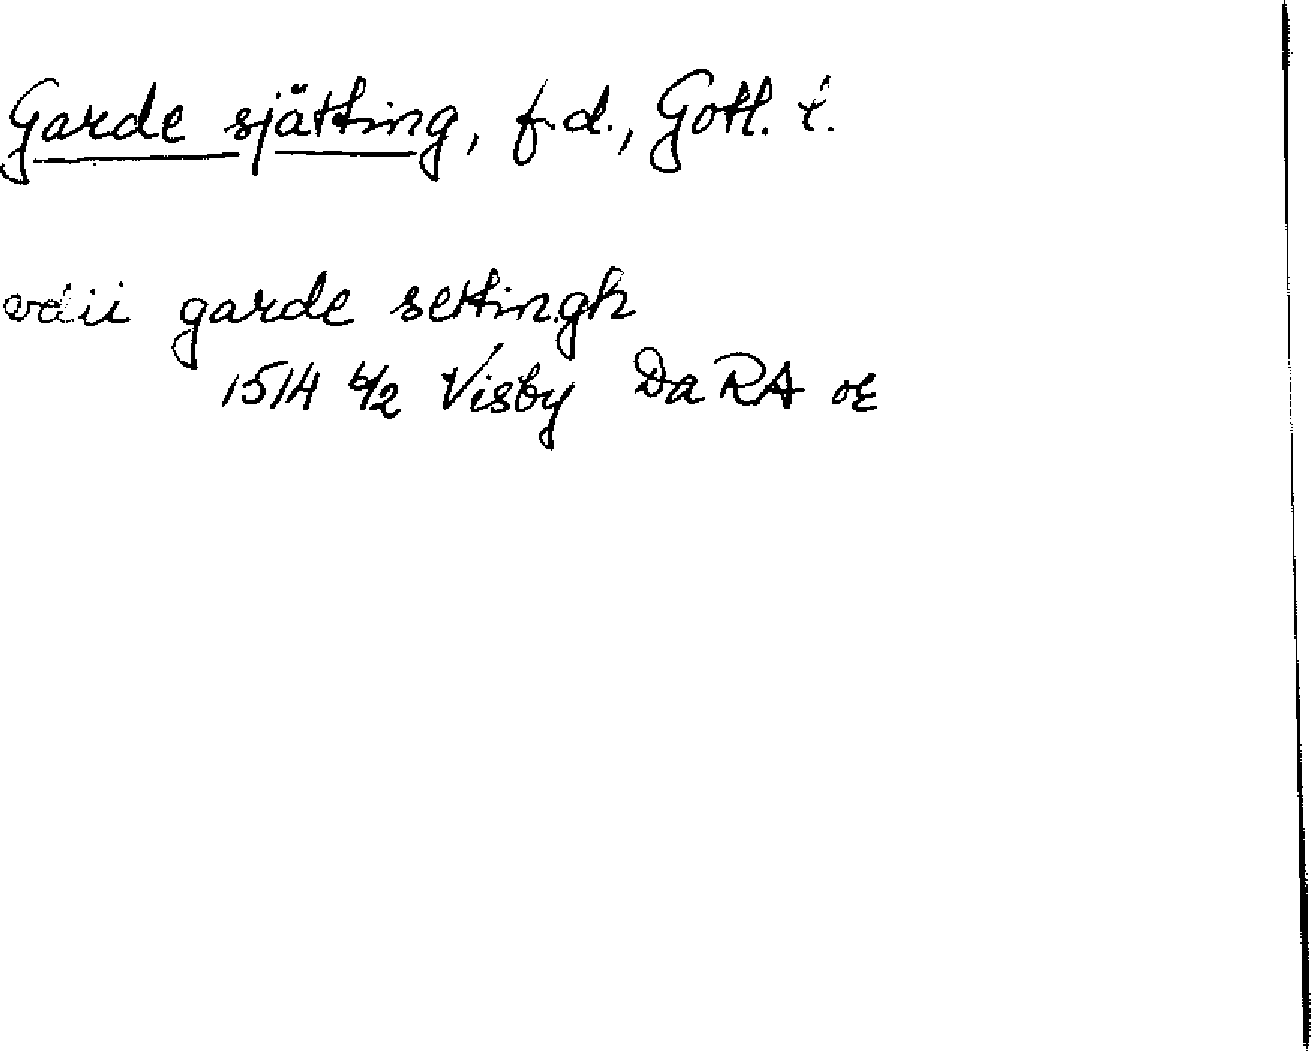 Garde sjätting, f.d., Gotl. t.
vdii garde settingh
1514 6/2 Visby Da RA or